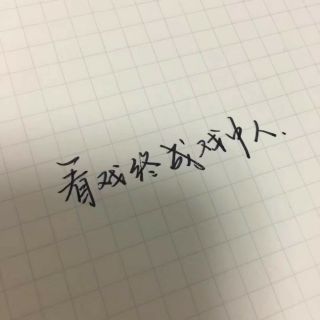 看戏终成戏中人.